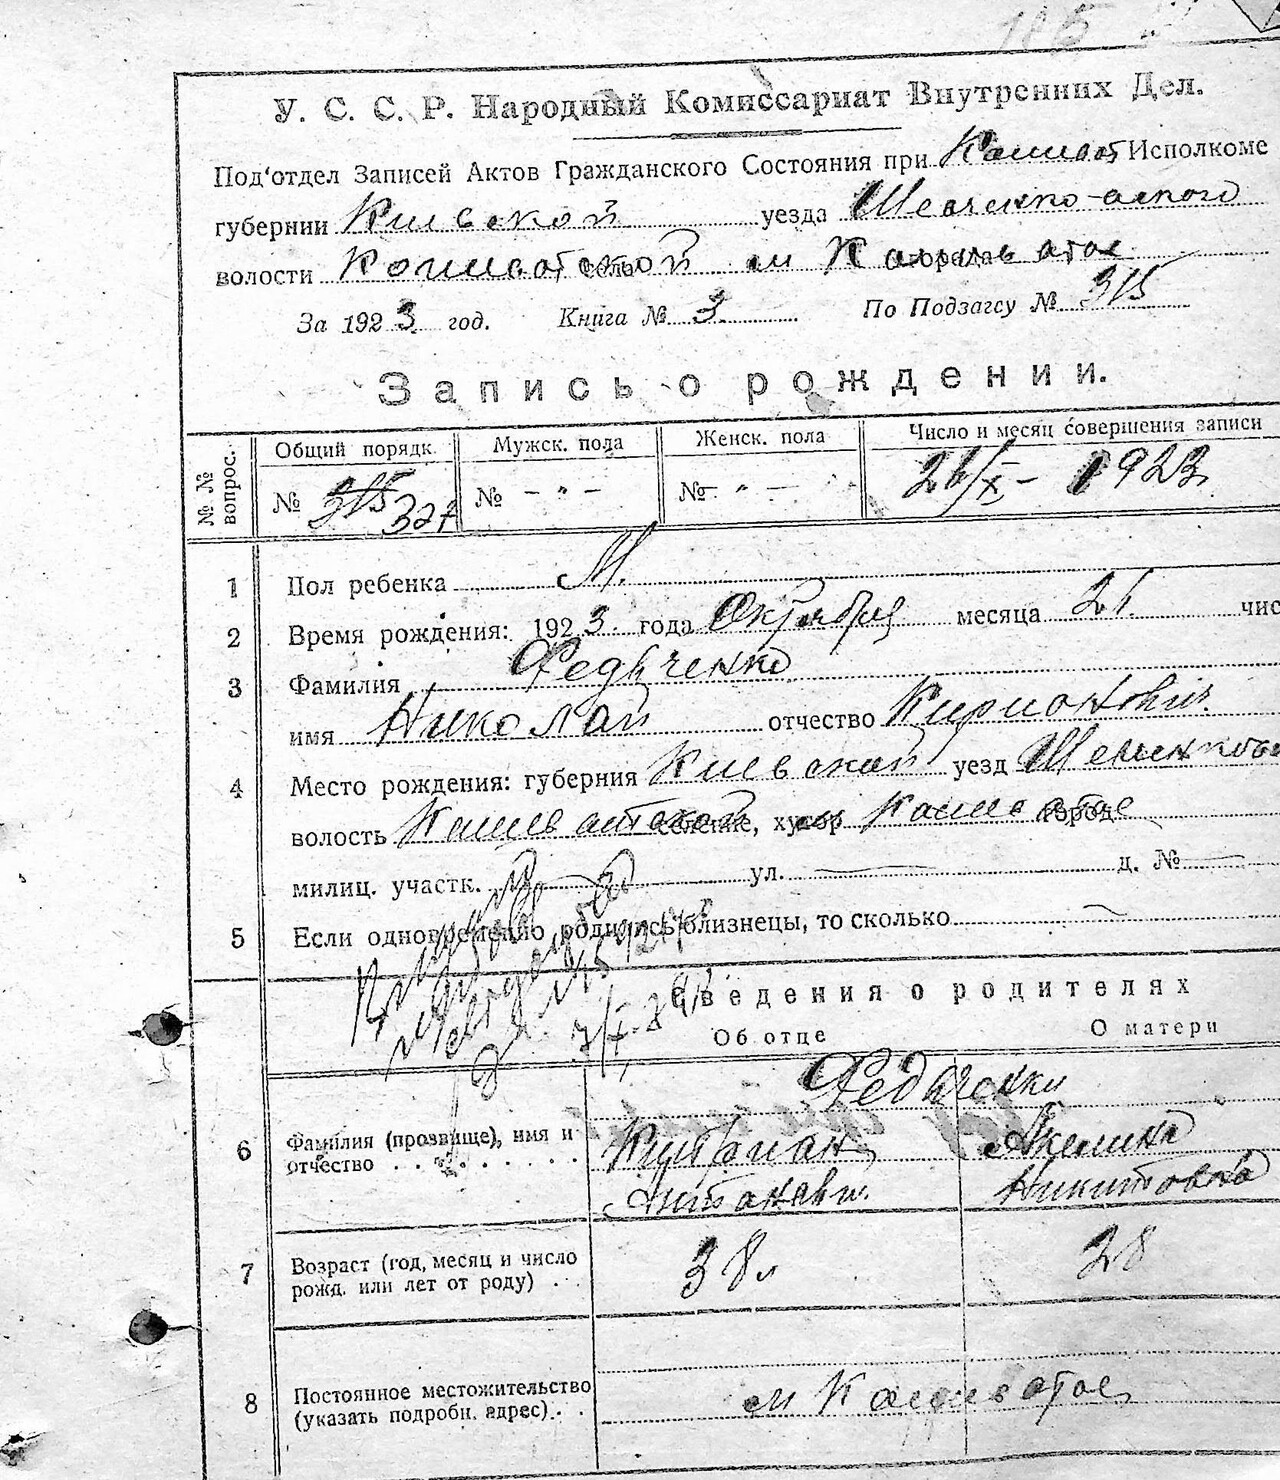 У. С. С. Р. Народный Комиссариат Внутренних Дел.
Под'отдел Записей Актов Гражданского Состояния при Исполкоме
губернии Киевской уезда Шевченко-вского
волости Кошеватской села м Кошеватое города
За 1923 год. Книга № 3 По Подзагсу № 315
Запись о рождении.
№ № вопрос. Общий порядк. Мужск. пола Женск. пола Число и месяц совершения записи
№ 315 327 № - " - № - " - 26/X - 1923
1 Пол ребенка М.
2 Время рождения: 1923 года Октября месяца 21 чис
3 Фамилия Федченко
имя Николай отчество
4 Место рождения: губерния Киевской уезд
волость Кошеватской селение, хутор м Кошеватое город
милиц. участк. — ул. — д. № —
5 Если одновременно родились близнецы, то сколько —
Сведения о родителях
Об отце О матери
Федченки
6 Фамилия (прозвище), имя и Акелина
отчество Никитовна
7 Возраст (год, месяц и число 38 л 28
рожд. или лет от роду)
8 Постоянное местожительство м Кошеватое
(указать подробн. адрес)